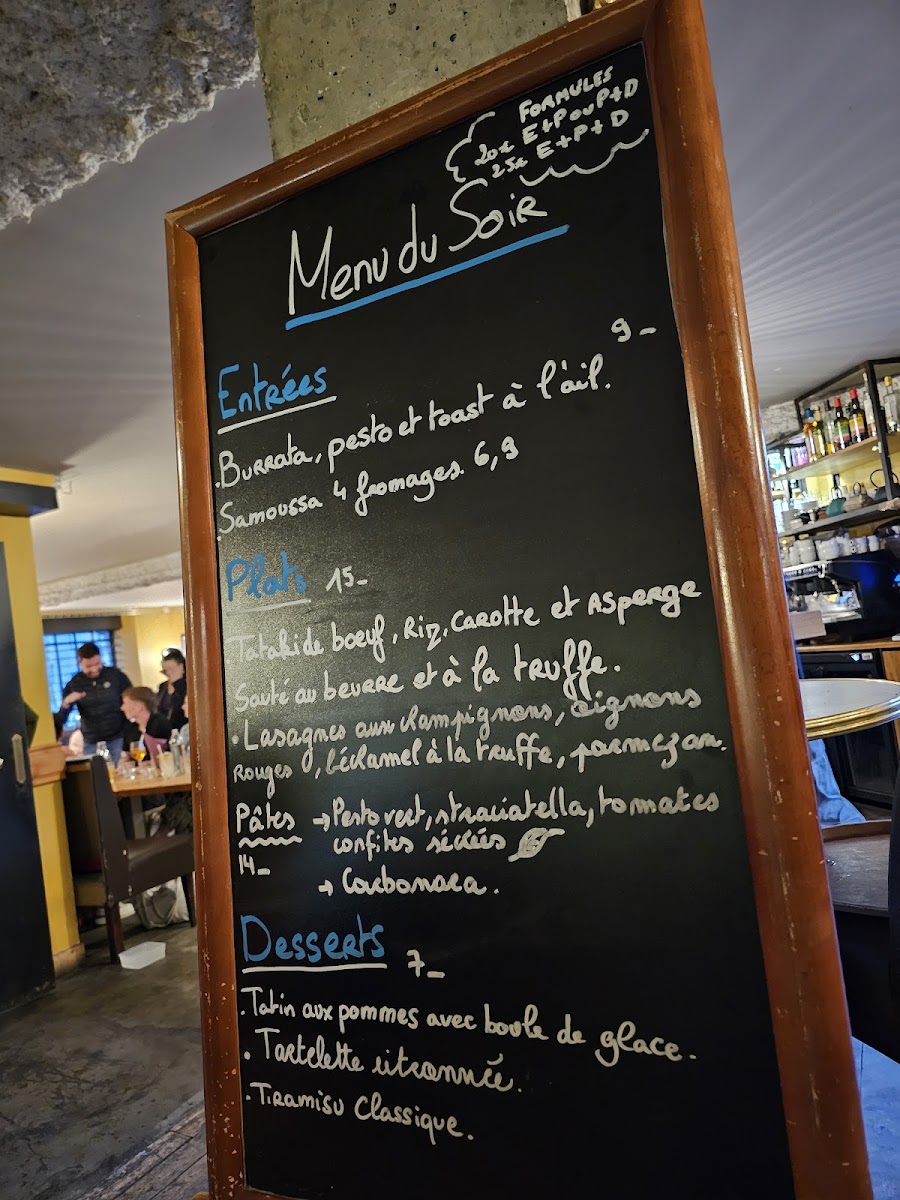 FORMULES
20€ E+P ou P+D
25€ E+P+D
Menu du Soir
Entrées
.Burrata, pesto et toast à l'ail. 9_
.Samoussa 4 fromages. 6,9
Plats 15_
Tataki de boeuf, Riz, Carotte et Asperge
Sauté au beurre et à la truffe.
.Lasagnes aux champignons, oignons
rouges, béchamel à la truffe, parmezan.
Pâtes → Pesto vert, straciatella, tomates
confites séchées
14_
→ Carbonara.
Desserts 7_
.Tatin aux pommes avec boule de glace.
.Tartelette citronnée.
.Tiramisu Classique.